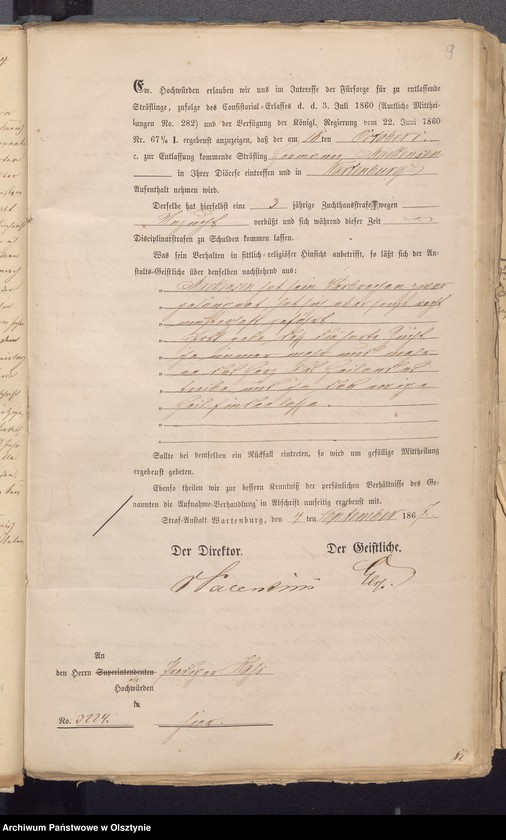 9
Ew. Hochwürden erlauben wir uns im Interesse der Fürsorge für zu entlassende
Sträflinge, zufolge des Consistorial-Erlasses d. d. 3. Juli 1860 (Amtliche Mitthei-
lungen No. 282) und der Verfügung der Königl. Regierung vom 22. Juni 1860
Nr. 67¼ I. ergebenst anzuzeigen, daß der am 18ten October
c. zur Entlassung kommende Sträfling Hermann
in Ihrer Diöcese eintreffen und in Wartenburg
Aufenthalt nehmen wird.
Derselbe hat hierselbst eine 3 jährige Zuchthausstrafe wegen
verbüßt und sich während dieser Zeit
Disciplinarstrafen zu Schulden kommen lassen.
Was sein Verhalten in sittlich-religiöser Hinsicht anbetrifft, so läßt sich der An-
stalts-Geistliche über denselben nachstehend aus:
hat sein Verbrechen zwar
hat sich aber sonst recht
geführt.
Gott gebe, daß die ernste Zucht
ihn immer mehr und mehr
an das Herz des Heilandes
treibe und ihn das ewige
Heil finden lasse.
Sollte bei demselben ein Rückfall eintreten, so wird um gefällige Mittheilung
ergebenst gebeten.
Ebenso theilen wir zur bessern Kenntniß der persönlichen Verhältnisse des Ge-
nannten die Aufnahme-Verhandlung in Abschrift umseitig ergebenst mit.
Straf-Anstalt Wartenburg, den 4 ten September 186
Der Direktor. Der Geistliche.
An
den Herrn Superintendenten Prediger
Hochwürden
zu
No. 3224. hier.
Archiwum Państwowe w Olsztynie